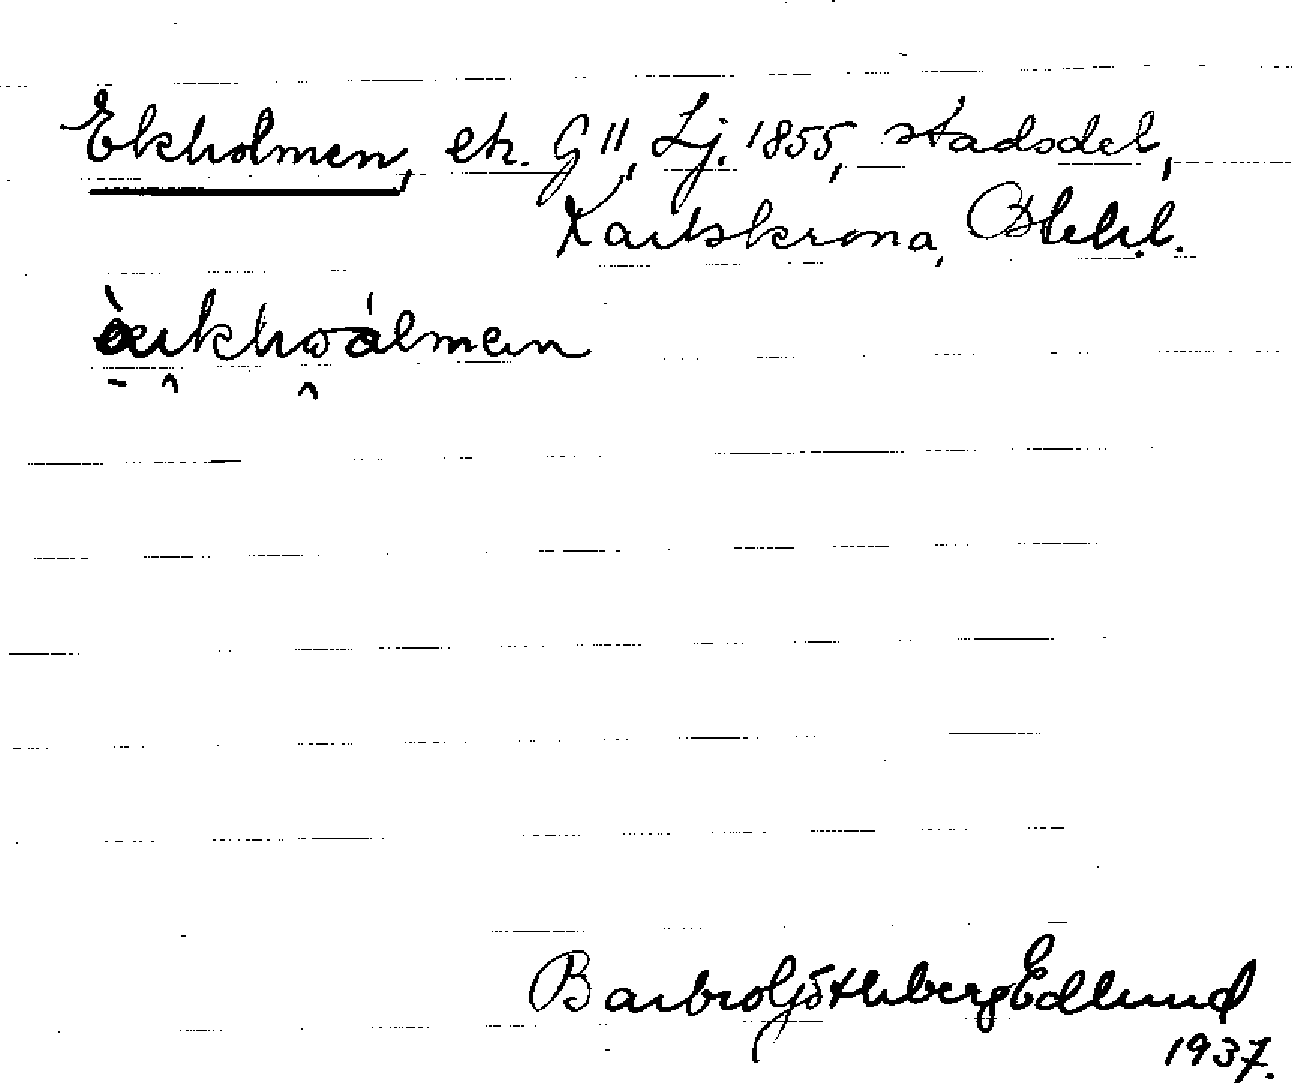 Ekholmen, ek. G 11, Lj. 1855, stadsdel,
Karlskrona, Blek.l.
Barbro Götheberg Edlund
1937.